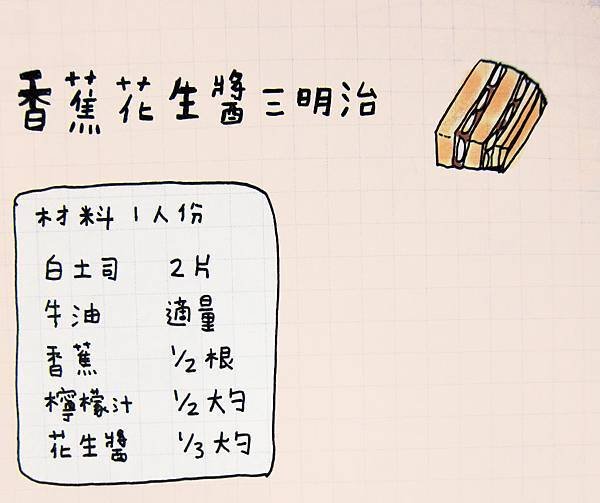 香蕉花生醬三明治
材料 1人份
白土司 2片
牛油 適量
香蕉 1/2根
檸檬汁 1/2大勺
花生醬 1/3大勺